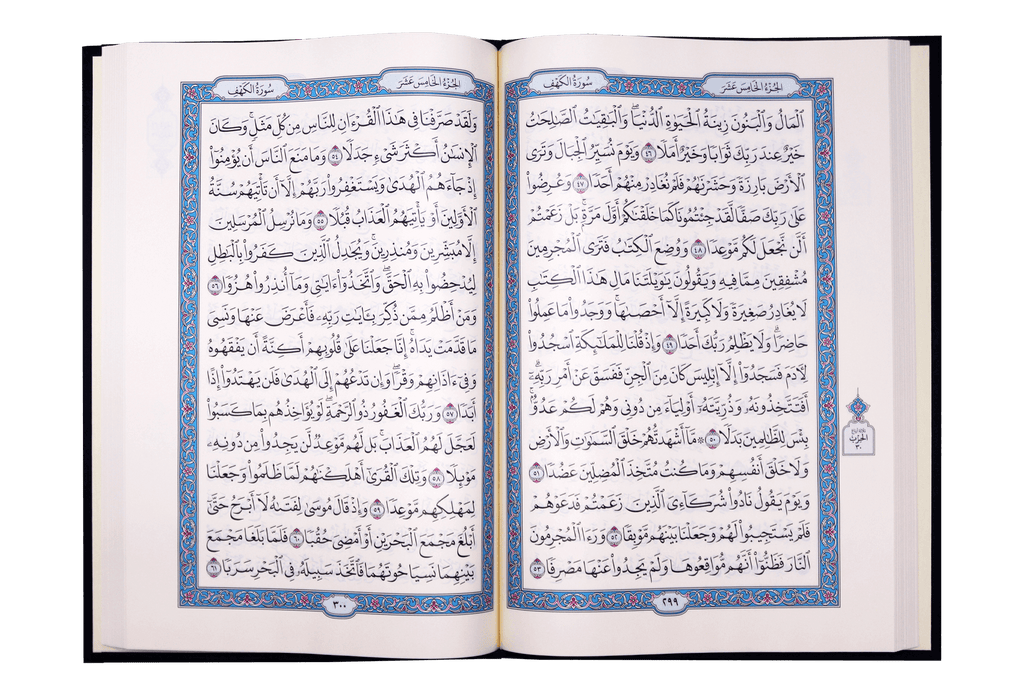 سُورَةُ الكَهْفِ
الجُزْءُ الخَامِسَ عَشَرَ
ٱلْمَالُ وَٱلْبَنُونَ زِينَةُ ٱلْحَيَوٰةِ ٱلدُّنْيَاۖ وَٱلْبَٰقِيَٰتُ ٱلصَّٰلِحَٰتُ
خَيْرٌ عِندَ رَبِّكَ ثَوَابًا وَخَيْرٌ أَمَلًا ٤٦ وَيَوْمَ نُسَيِّرُ ٱلْجِبَالَ وَتَرَى
ٱلْأَرْضَ بَارِزَةً وَحَشَرْنَٰهُمْ فَلَمْ نُغَادِرْ مِنْهُمْ أَحَدًا ٤٧ وَعُرِضُوا۟
عَلَىٰ رَبِّكَ صَفًّا لَّقَدْ جِئْتُمُونَا كَمَا خَلَقْنَٰكُمْ أَوَّلَ مَرَّةٍۭۚ بَلْ زَعَمْتُمْ
أَلَّن نَّجْعَلَ لَكُم مَّوْعِدًا ٤٨ وَوُضِعَ ٱلْكِتَٰبُ فَتَرَى ٱلْمُجْرِمِينَ
مُشْفِقِينَ مِمَّا فِيهِ وَيَقُولُونَ يَٰوَيْلَتَنَا مَالِ هَٰذَا ٱلْكِتَٰبِ
لَا يُغَادِرُ صَغِيرَةً وَلَا كَبِيرَةً إِلَّآ أَحْصَىٰهَاۚ وَوَجَدُوا۟ مَا عَمِلُوا۟
حَاضِرًاۗ وَلَا يَظْلِمُ رَبُّكَ أَحَدًا ٤٩ وَإِذْ قُلْنَا لِلْمَلَٰٓئِكَةِ ٱسْجُدُوا۟
لِـَٔادَمَ فَسَجَدُوٓا۟ إِلَّآ إِبْلِيسَ كَانَ مِنَ ٱلْجِنِّ فَفَسَقَ عَنْ أَمْرِ رَبِّهِۦٓۗ
أَفَتَتَّخِذُونَهُۥ وَذُرِّيَّتَهُۥٓ أَوْلِيَآءَ مِن دُونِى وَهُمْ لَكُمْ عَدُوٌّۢۚ
بِئْسَ لِلظَّٰلِمِينَ بَدَلًا ٥٠ ۞ مَّآ أَشْهَدتُّهُمْ خَلْقَ ٱلسَّمَٰوَٰتِ وَٱلْأَرْضِ
وَلَا خَلْقَ أَنفُسِهِمْ وَمَا كُنتُ مُتَّخِذَ ٱلْمُضِلِّينَ عَضُدًا ٥١
وَيَوْمَ يَقُولُ نَادُوا۟ شُرَكَآءِىَ ٱلَّذِينَ زَعَمْتُمْ فَدَعَوْهُمْ
فَلَمْ يَسْتَجِيبُوا۟ لَهُمْ وَجَعَلْنَا بَيْنَهُم مَّوْبِقًا ٥٢ وَرَءَا ٱلْمُجْرِمُونَ
ٱلنَّارَ فَظَنُّوٓا۟ أَنَّهُم مُّوَاقِعُوهَا وَلَمْ يَجِدُوا۟ عَنْهَا مَصْرِفًا ٥٣
٢٩٩
الحِزْبُ
٣٠
سُورَةُ الكَهْفِ
الجُزْءُ الخَامِسَ عَشَرَ
وَلَقَدْ صَرَّفْنَا فِى هَٰذَا ٱلْقُرْءَانِ لِلنَّاسِ مِن كُلِّ مَثَلٍۚ وَكَانَ
ٱلْإِنسَٰنُ أَكْثَرَ شَىْءٍ جَدَلًا ٥٤ وَمَا مَنَعَ ٱلنَّاسَ أَن يُؤْمِنُوٓا۟
إِذْ جَآءَهُمُ ٱلْهُدَىٰ وَيَسْتَغْفِرُوا۟ رَبَّهُمْ إِلَّآ أَن تَأْتِيَهُمْ سُنَّةُ
ٱلْأَوَّلِينَ أَوْ يَأْتِيَهُمُ ٱلْعَذَابُ قُبُلًا ٥٥ وَمَا نُرْسِلُ ٱلْمُرْسَلِينَ
إِلَّا مُبَشِّرِينَ وَمُنذِرِينَۚ وَيُجَٰدِلُ ٱلَّذِينَ كَفَرُوا۟ بِٱلْبَٰطِلِ
لِيُدْحِضُوا۟ بِهِ ٱلْحَقَّۖ وَٱتَّخَذُوٓا۟ ءَايَٰتِى وَمَآ أُنذِرُوا۟ هُزُوًا ٥٦
وَمَنْ أَظْلَمُ مِمَّن ذُكِّرَ بِـَٔايَٰتِ رَبِّهِۦ فَأَعْرَضَ عَنْهَا وَنَسِىَ
مَا قَدَّمَتْ يَدَاهُۚ إِنَّا جَعَلْنَا عَلَىٰ قُلُوبِهِمْ أَكِنَّةً أَن يَفْقَهُوهُ
وَفِىٓ ءَاذَانِهِمْ وَقْرًاۖ وَإِن تَدْعُهُمْ إِلَى ٱلْهُدَىٰ فَلَن يَهْتَدُوٓا۟ إِذًا
أَبَدًا ٥٧ وَرَبُّكَ ٱلْغَفُورُ ذُو ٱلرَّحْمَةِۖ لَوْ يُؤَاخِذُهُم بِمَا كَسَبُوا۟
لَعَجَّلَ لَهُمُ ٱلْعَذَابَۚ بَل لَّهُم مَّوْعِدٌ لَّن يَجِدُوا۟ مِن دُونِهِۦ
مَوْئِلًا ٥٨ وَتِلْكَ ٱلْقُرَىٰٓ أَهْلَكْنَٰهُمْ لَمَّا ظَلَمُوا۟ وَجَعَلْنَا
لِمَهْلِكِهِم مَّوْعِدًا ٥٩ وَإِذْ قَالَ مُوسَىٰ لِفَتَىٰهُ لَآ أَبْرَحُ حَتَّىٰٓ
أَبْلُغَ مَجْمَعَ ٱلْبَحْرَيْنِ أَوْ أَمْضِىَ حُقُبًا ٦٠ فَلَمَّا بَلَغَا مَجْمَعَ
بَيْنِهِمَا نَسِيَا حُوتَهُمَا فَٱتَّخَذَ سَبِيلَهُۥ فِى ٱلْبَحْرِ سَرَبًا ٦١
٣٠٠